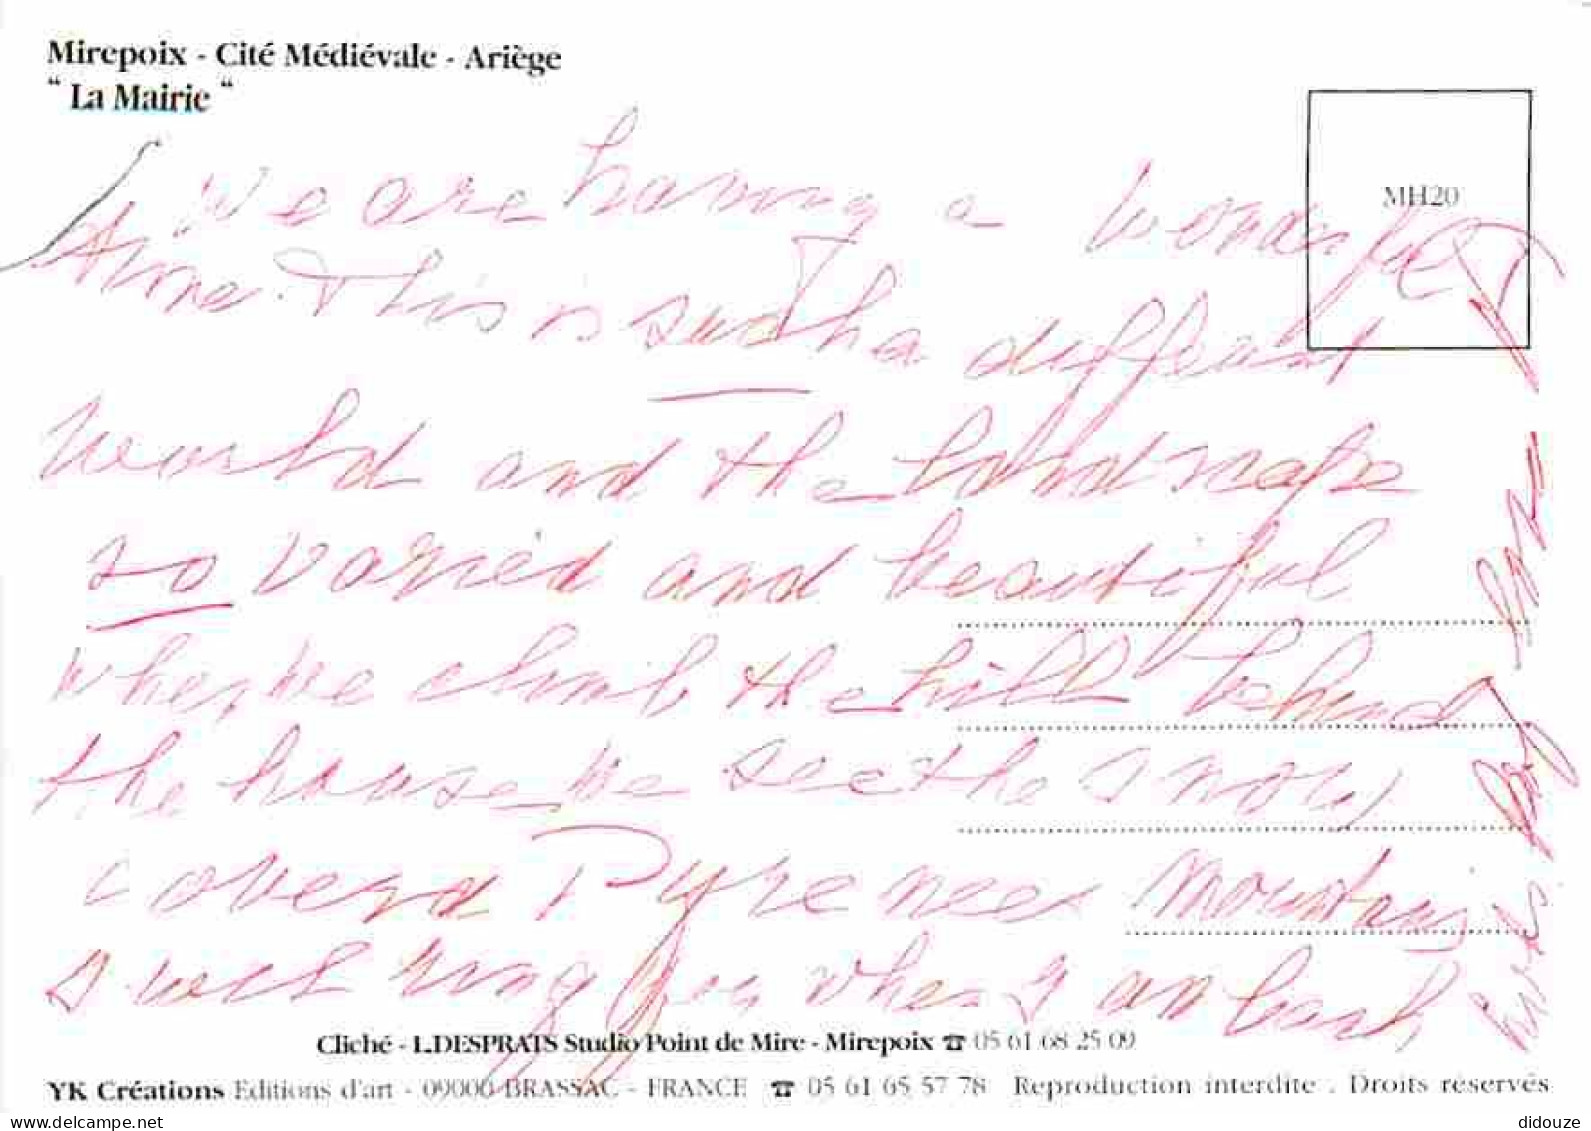 Mirepoix - Cité Médiévale - Ariège
“ La Mairie “
MH20
We are having a wonderful
time. This is such a different
world and the landscape
so varied and beautiful
when we climb the hill behind
the house we see the snow
covered Pyrenees Mountains
I will ring you when I am back
Cliché - L.DESPRATS Studio Point de Mire - Mirepoix ☎ 05 61 68 25 09
YK Créations Editions d'art - 09000 BRASSAC - FRANCE ☎ 05 61 65 57 78 Reproduction interdite . Droits réservés
delcampe.net
didouze